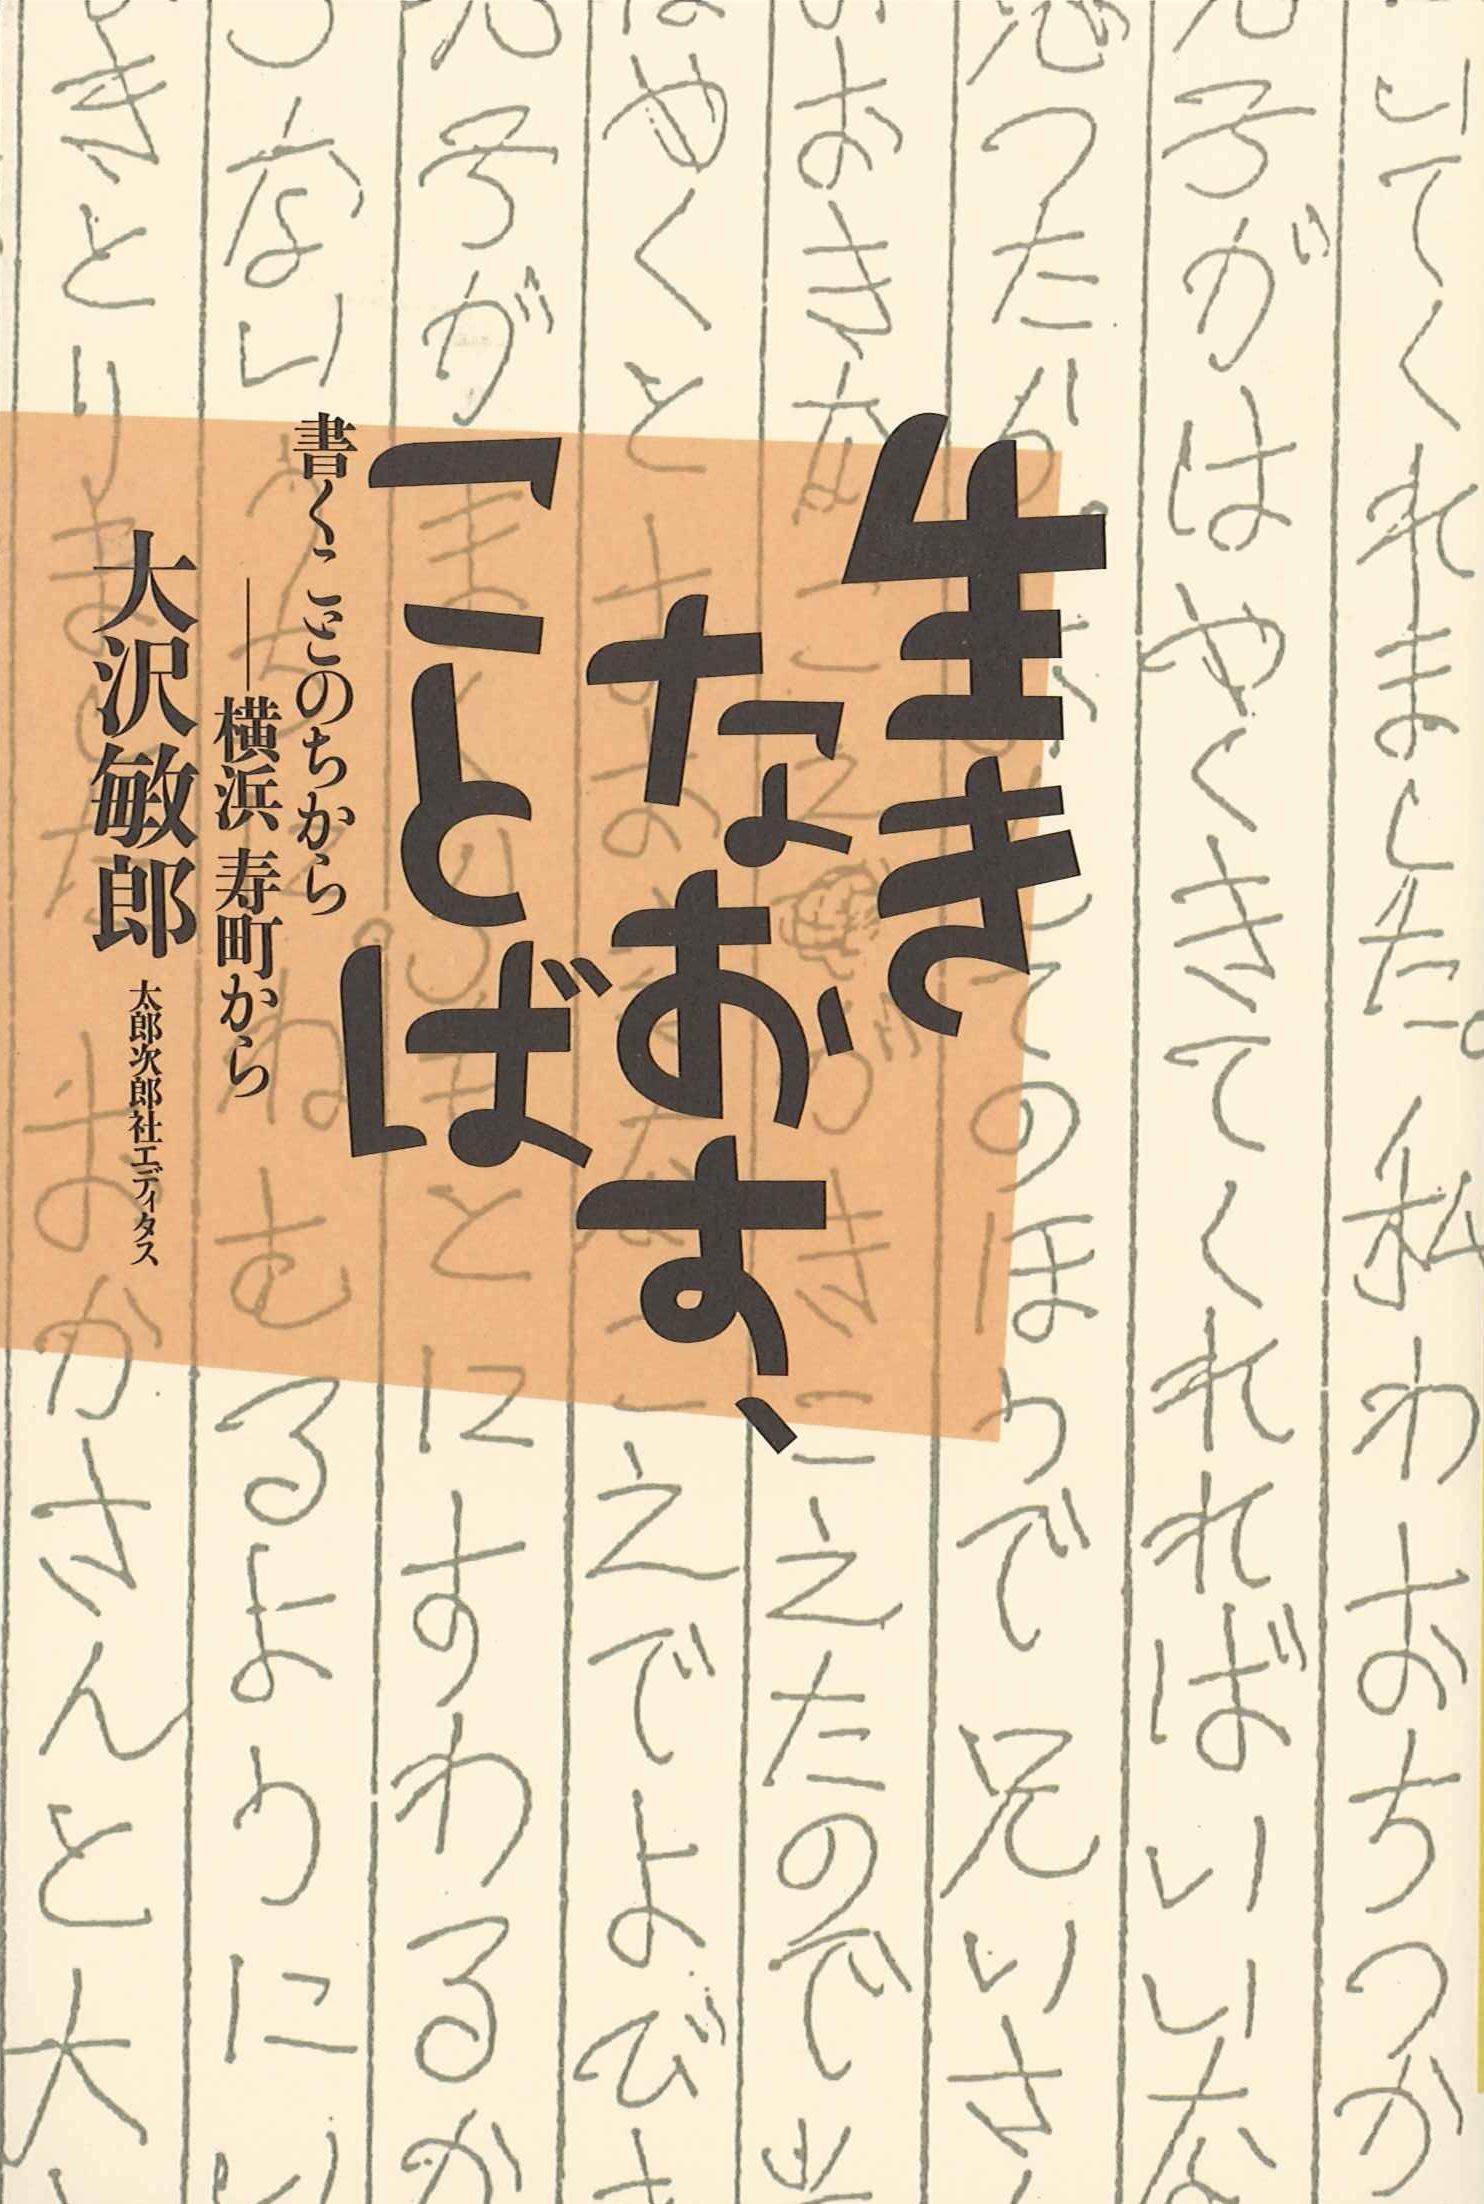 生き
なおす、
ことば
書くことのちから
――横浜 寿町から
大沢敏郎
太郎次郎社エディタス
いてくれました。私わおちつか
子がはやくきてくれればいいな
思つたが。
てのほうで兄いさ
おおきなこえがきこえたので
はやくと
こえでよびま
子がま
とにすわるか
ない
ねむるようにい
きとりました
おかさんと大